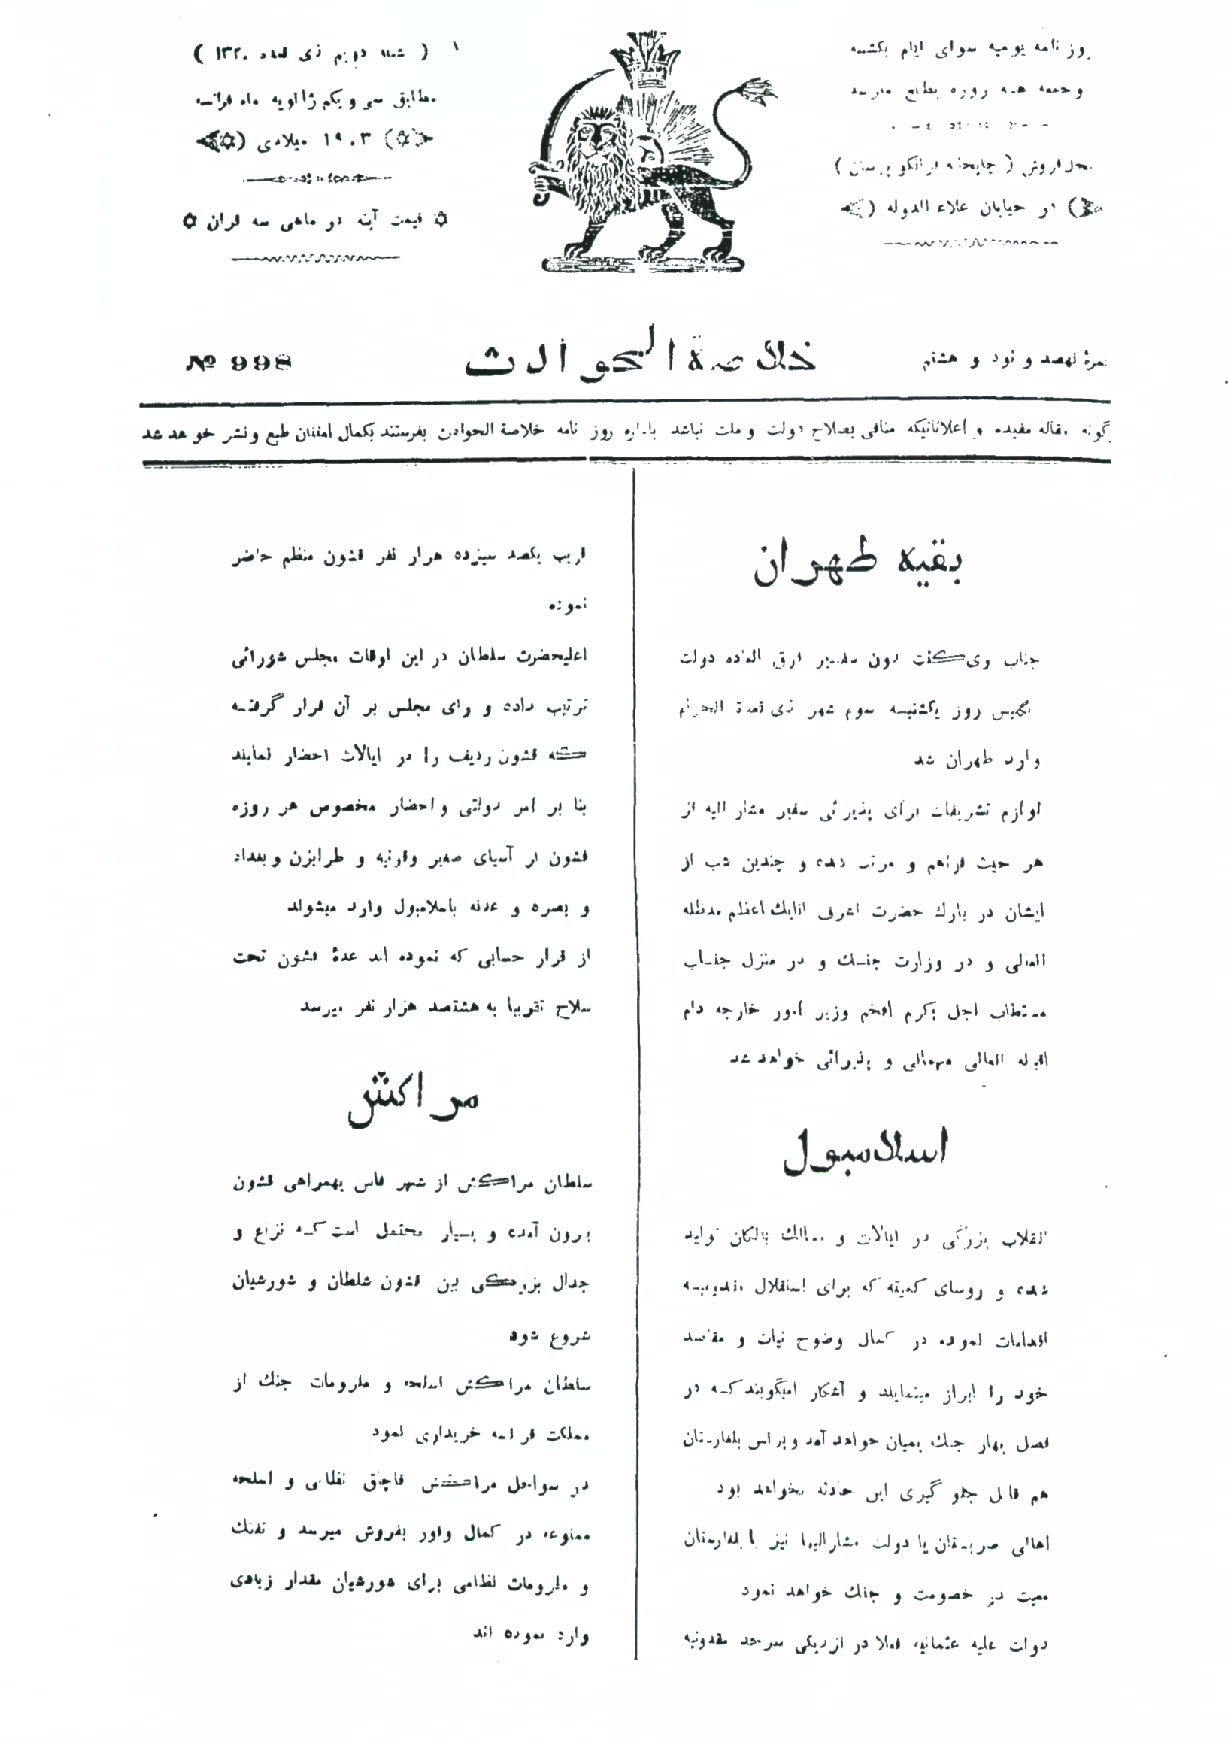 روز نامه یومیه سوای ایام یکشنبه
و جمعه همه روزه بطبع میرسد
محل فروش ( چاپخانه فرانکو پرسان )
در خیابان علاء الدوله
( شنبه دویم ذی قعده ۱۳۲۰ )
مطابق سی و یکم ژانویه ماه فرانسه
۱۹۰۳ میلادی
قیمت آبنه در ماهی سه قران
نمرهٔ نهصد و نود و هشتم
خلاصة الحوادث
№ 998
گونه مقاله مفیده و اعلاناتیکه منافی بصلاح دولت و ملت نباشد باداره روز نامه خلاصة الحوادث بفرستند بکمال امتنان طبع و نشر خواهد شد
بقیه طهران
جناب ویکنت دون سفیر فوق العاده دولت
انگلیس روز یکشنبه سوم شهر ذی قعدة الحرام
وارد طهران شد
لوازم تشریفات برای پذیرائی سفیر مشار الیه از
هر حیث فراهم و مرتب شده و چندین شب از
ایشان در پارك حضرت اشرف اتابك اعظم مدظله
العالی و در وزارت جنـك و در منزل جنـاب
مستطاب اجل اکرم افخم وزیر امور خارجه دام
اقباله العالی مهمانی و پذیرائی خواهد شد
اسلامبول
انقلاب بزرگی در ایالات و ممالك بالکان تولید
شده و روسای کمیته که برای استقلال مقدونیـه
اقدامات نموده در کمال وضوح نیات و مقاصد
خود را ابراز مینمایند و آشکار میگویند کـه در
فصل بهار جنك بمیان خواهد آمد و پرنس بلغارستان
هم قابل جلو گیری این حادثه نخواهد بود
اهالی صربستان یا دولت مشارالیها نیز با بلغارستان
معیت در خصومت و جنك خواهد نمود
دولت علیه عثمانیه فعلا در نزدیکی سرحد مقدونیه
قریب یکصد سیزده هزار نفر قشون منظم حاضر
نموده
اعلیحضرت سلطان در این اوقات مجلس شورائی
ترتیب داده و رای مجلس بر آن قرار گرفتـه
کـه قشون ردیف را در ایالات احضار نمایند
بنا بر امر دولتی و احضار مخصوص هر روزه
قشون از آسیای صغیر وقونیه و طرابزن و بغداد
و بصره و عدنه باسلامبول وارد میشوند
از قرار حسابی که نموده اند عدهٔ قشون تحت
سلاح تقریبا به هشتصد هزار نفر میرسد
مراکش
سلطان مراکش از شهر فاس بهمراهی قشون
بیرون آمده و بسیار محتمل است کـه نزاع و
جدال بزرگی بین قشون سلطان و شورشیان
شروع شود
سلطان مراکش اسلحه و ملزومات جنك از
مملکت فرانسه خریداری نمود
در سواحل مراکش قاچاق نظامی و اسلحه
ممنوعه در کمال وفور بفروش میرسد و تفنك
و ملزومات نظامی برای شورشیان مقدار زیادی
وارد نموده اند